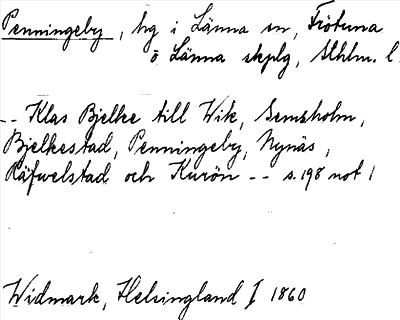 Penningeby, hg i Länna sn, Frötuna
o Länna skplg, Sthlm. l.
-- Klas Bjelke till Wik, Semsholm,
Bjelkestad, Penningeby, Nynäs,
Räfwelstad och Kurön -- s. 198 not 1
Widmark, Helsingland I 1860